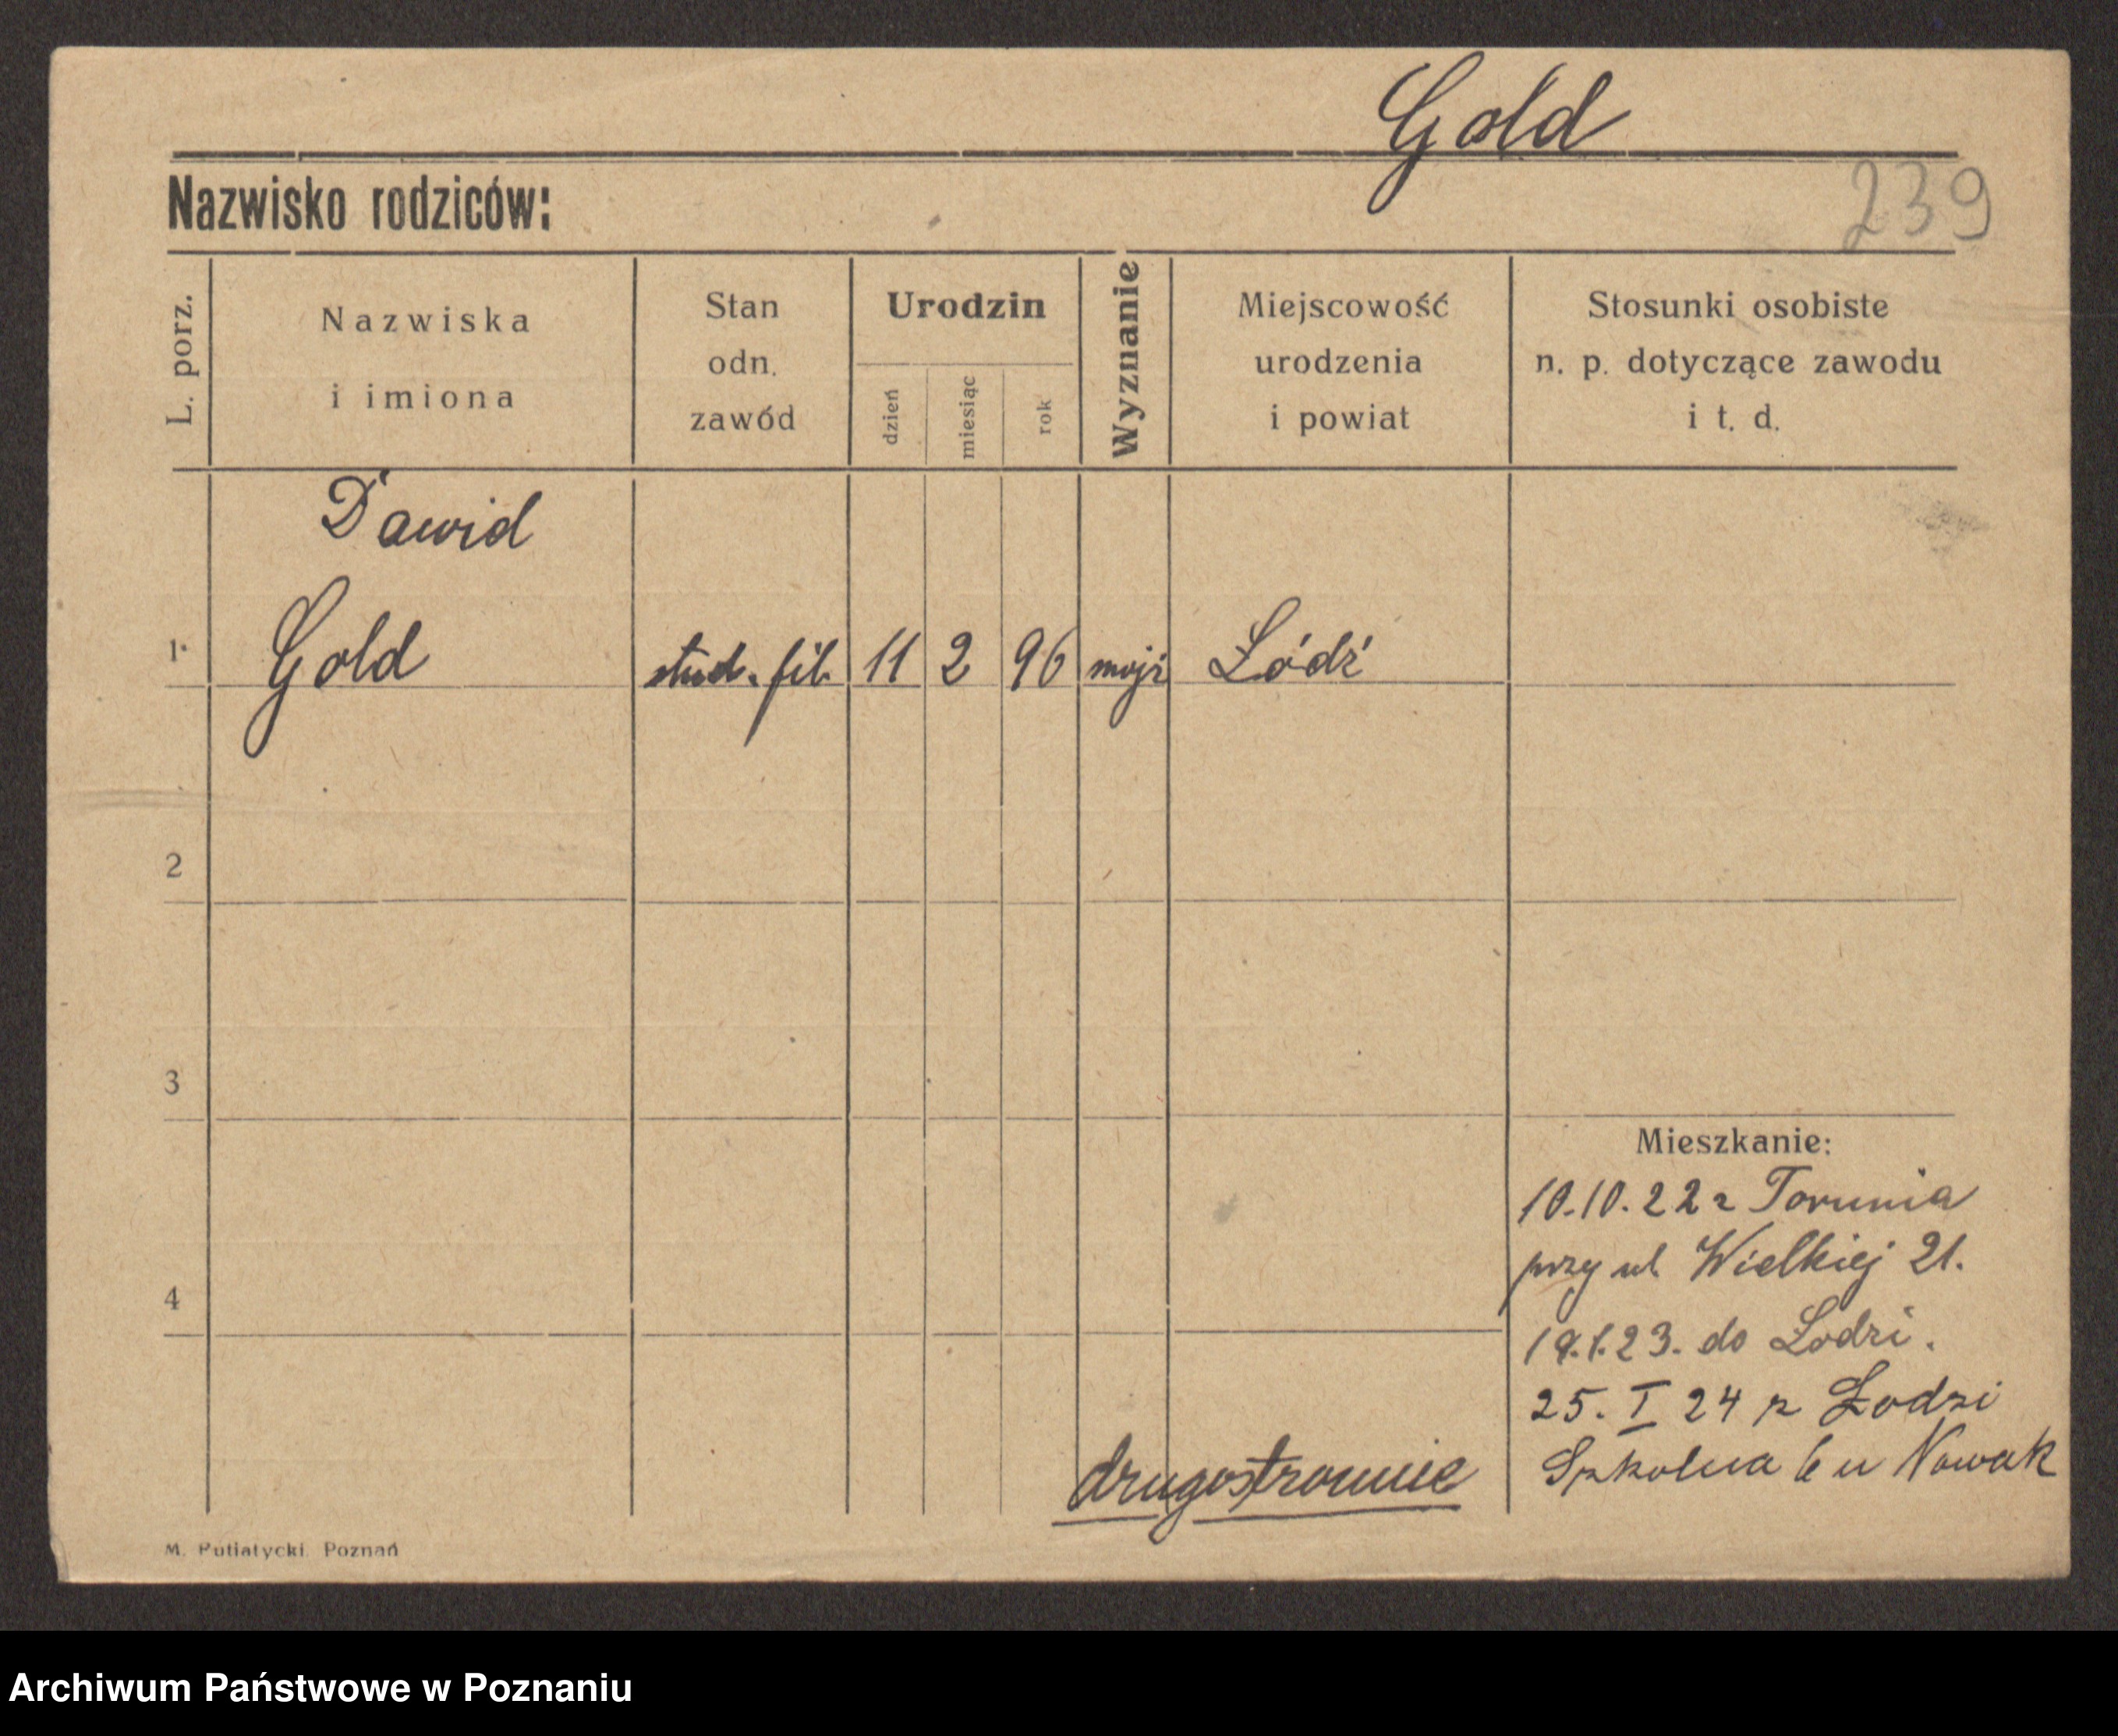 Gold
Nazwisko rodziców:
239
L. porz.
Nazwiska
i imiona
Stan
odn.
zawód
Urodzin
dzień
miesiąc
rok
Wyznanie
Miejscowość
urodzenia
i powiat
Stosunki osobiste
n. p. dotyczące zawodu
i t. d.
Dawid
1 Gold stud. fil. 11 2 96 mojż Łódź
2
3
4
Mieszkanie:
10.10.22 z Torunia
przy ul Wielkiej 21.
19.1.23. do Łodzi.
25. I 24 z Łodzi
Szkolna 6 u Nowak
drugostronnie
M. Putiatycki. Poznań
Archiwum Państwowe w Poznaniu